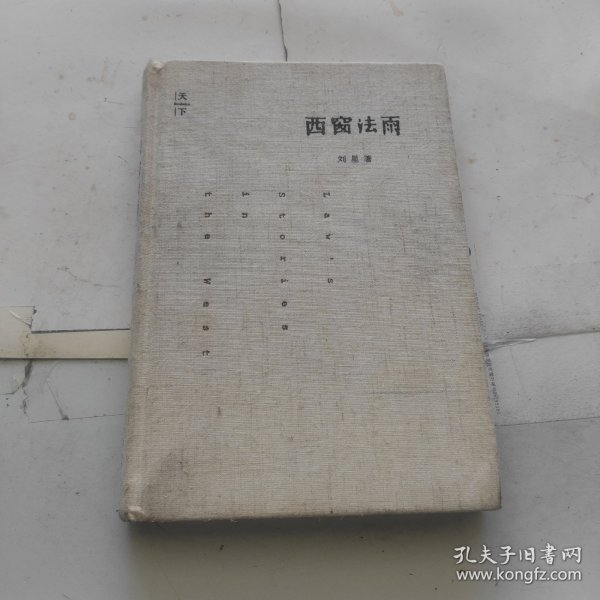 天
下
西窗法雨
刘星著
Law's
Stories
in
the West
孔夫子旧书网
www.kongfz.com